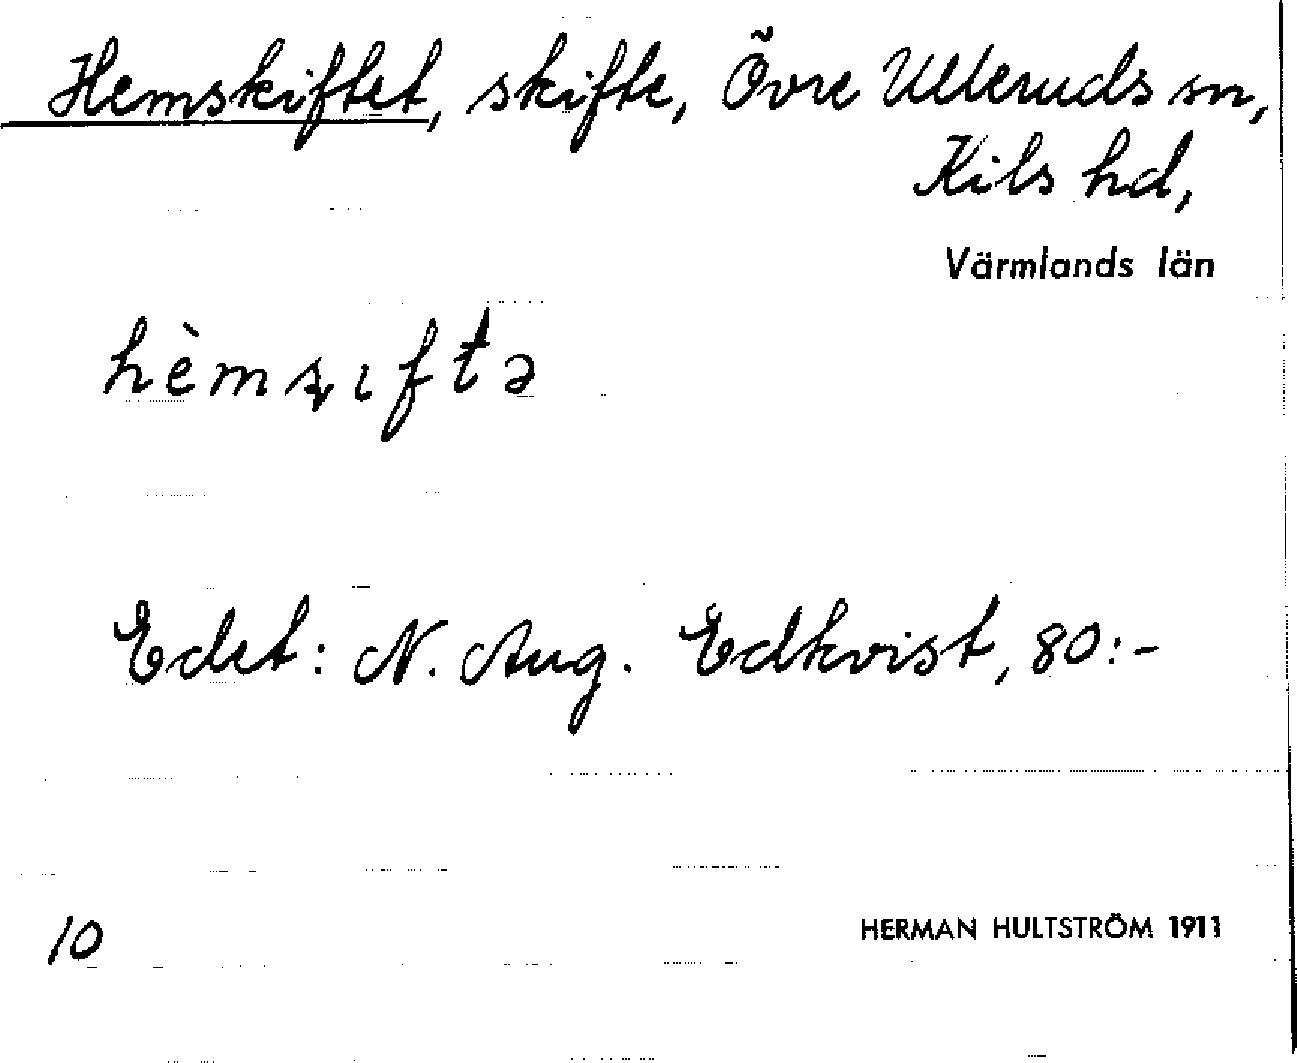 Hemskiftet, skifte, Övre Ulleruds sn,
Kils hd,
Värmlands län
hèmʂıftə
Edet: N. Aug. Edkvist, 80:-
10
HERMAN HULTSTRÖM 1911